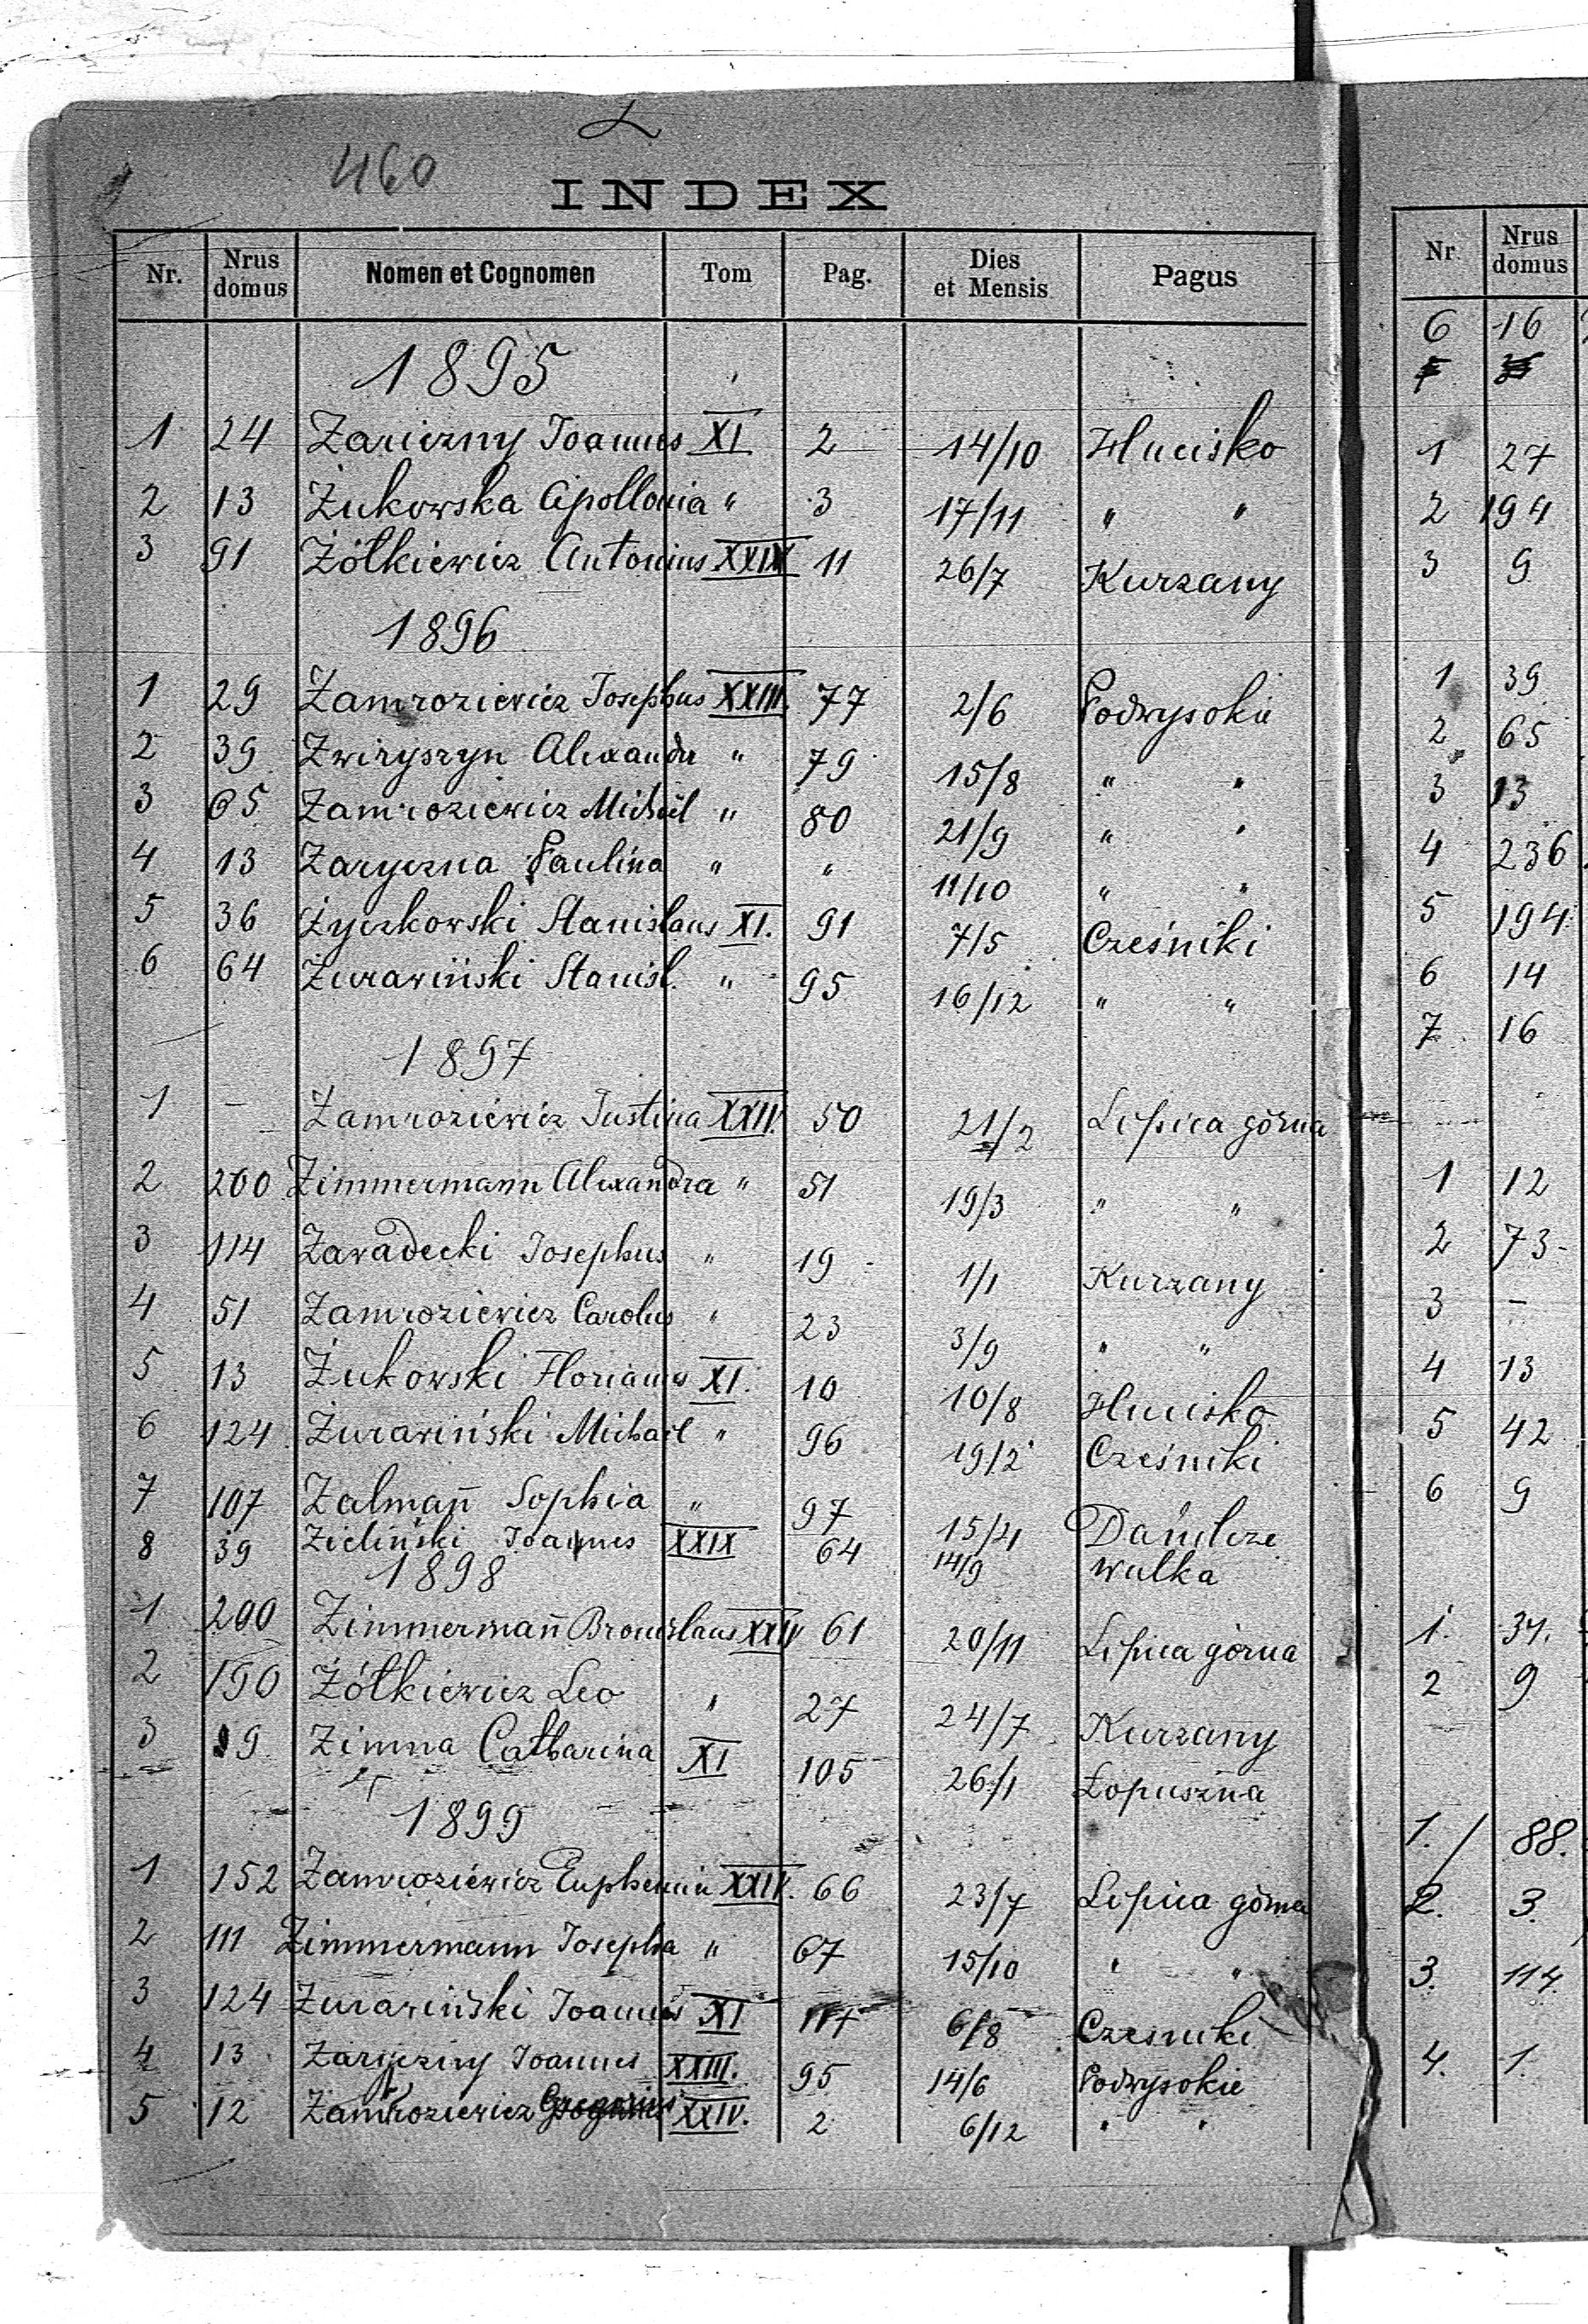 460
INDEX
Nr. Nrus domus Nomen et Cognomen Tom Pag. Dies et Mensis Pagus
1895
1 24 Zariczny Joannes XI 2 14/10 Hucisko
2 13 Żukowska Apollonia " 3 17/11 " "
3 91 Żółkiewicz Antonius XXIX 11 26/7 Kurzany
1896
1 29 Zamroziewicz Josephus XXIII. 77 2/6 Podwysokie
2 39 Zwiryszyn Alexander " 79 15/8 " "
3 65 Zamroziewicz Michael " 80 21/9 " "
4 13 Zaryczna Paulina " " 11/10 " "
5 36 Życzkowski Stanislaus XI. 91 7/5 Cześniki
6 64 Żurawiński Stanisl. " 95 16/12 " "
1897
1 – Zamroziewicz Justina XXIV. 50 21/2 Lipica górna
2 200 Zimmermann Alexandra " 51 19/3 " "
3 114 Zawadecki Josephus " 19 1/1 Kurzany
4 51 Zamroziewicz Carolus " 23 3/9 " "
5 13 Żukowski Florianus XI. 10 10/8 Hucisko
6 124 Żurawiński Michael " 96 19/2 Cześniki
7 107 Zalman̄ Sophia " 97 15/4 Danilcze
8 39 Zieliński Joannes XXIX 64 14/9 Wulka
1898
1 200 Zimmerman̄ Bronislaus XXIV 61 20/11 Lipica górna
2 190 Żółkiewicz Leo " 27 24/7 Kurzany
3 9 Zimna Catharina XI 105 26/1 Łopuszna
1899
1 152 Zamroziewicz Euphemia XXIV. 66 23/7 Lipica górna
2 111 Zimmermann Josepha " 67 15/10 " "
3 124 Żurawiński Joannes XI 6/8 Cześniki
4 13 Zaryczny Joannes XXIII. 95 14/6 Podwysokie
5 12 Zamroziewicz Gregorius XXIV. 2 6/12 " "
Nr. Nrus domus
6 16
1 27
2 194
3 9
1 39
2 65
3 13
4 236
5 194
6 14
7 16
1 12
2 73-
3 –
4 13
5 42
6 9
1. 34.
2 9
1. 88.
2. 3.
3. 114.
4. 1.